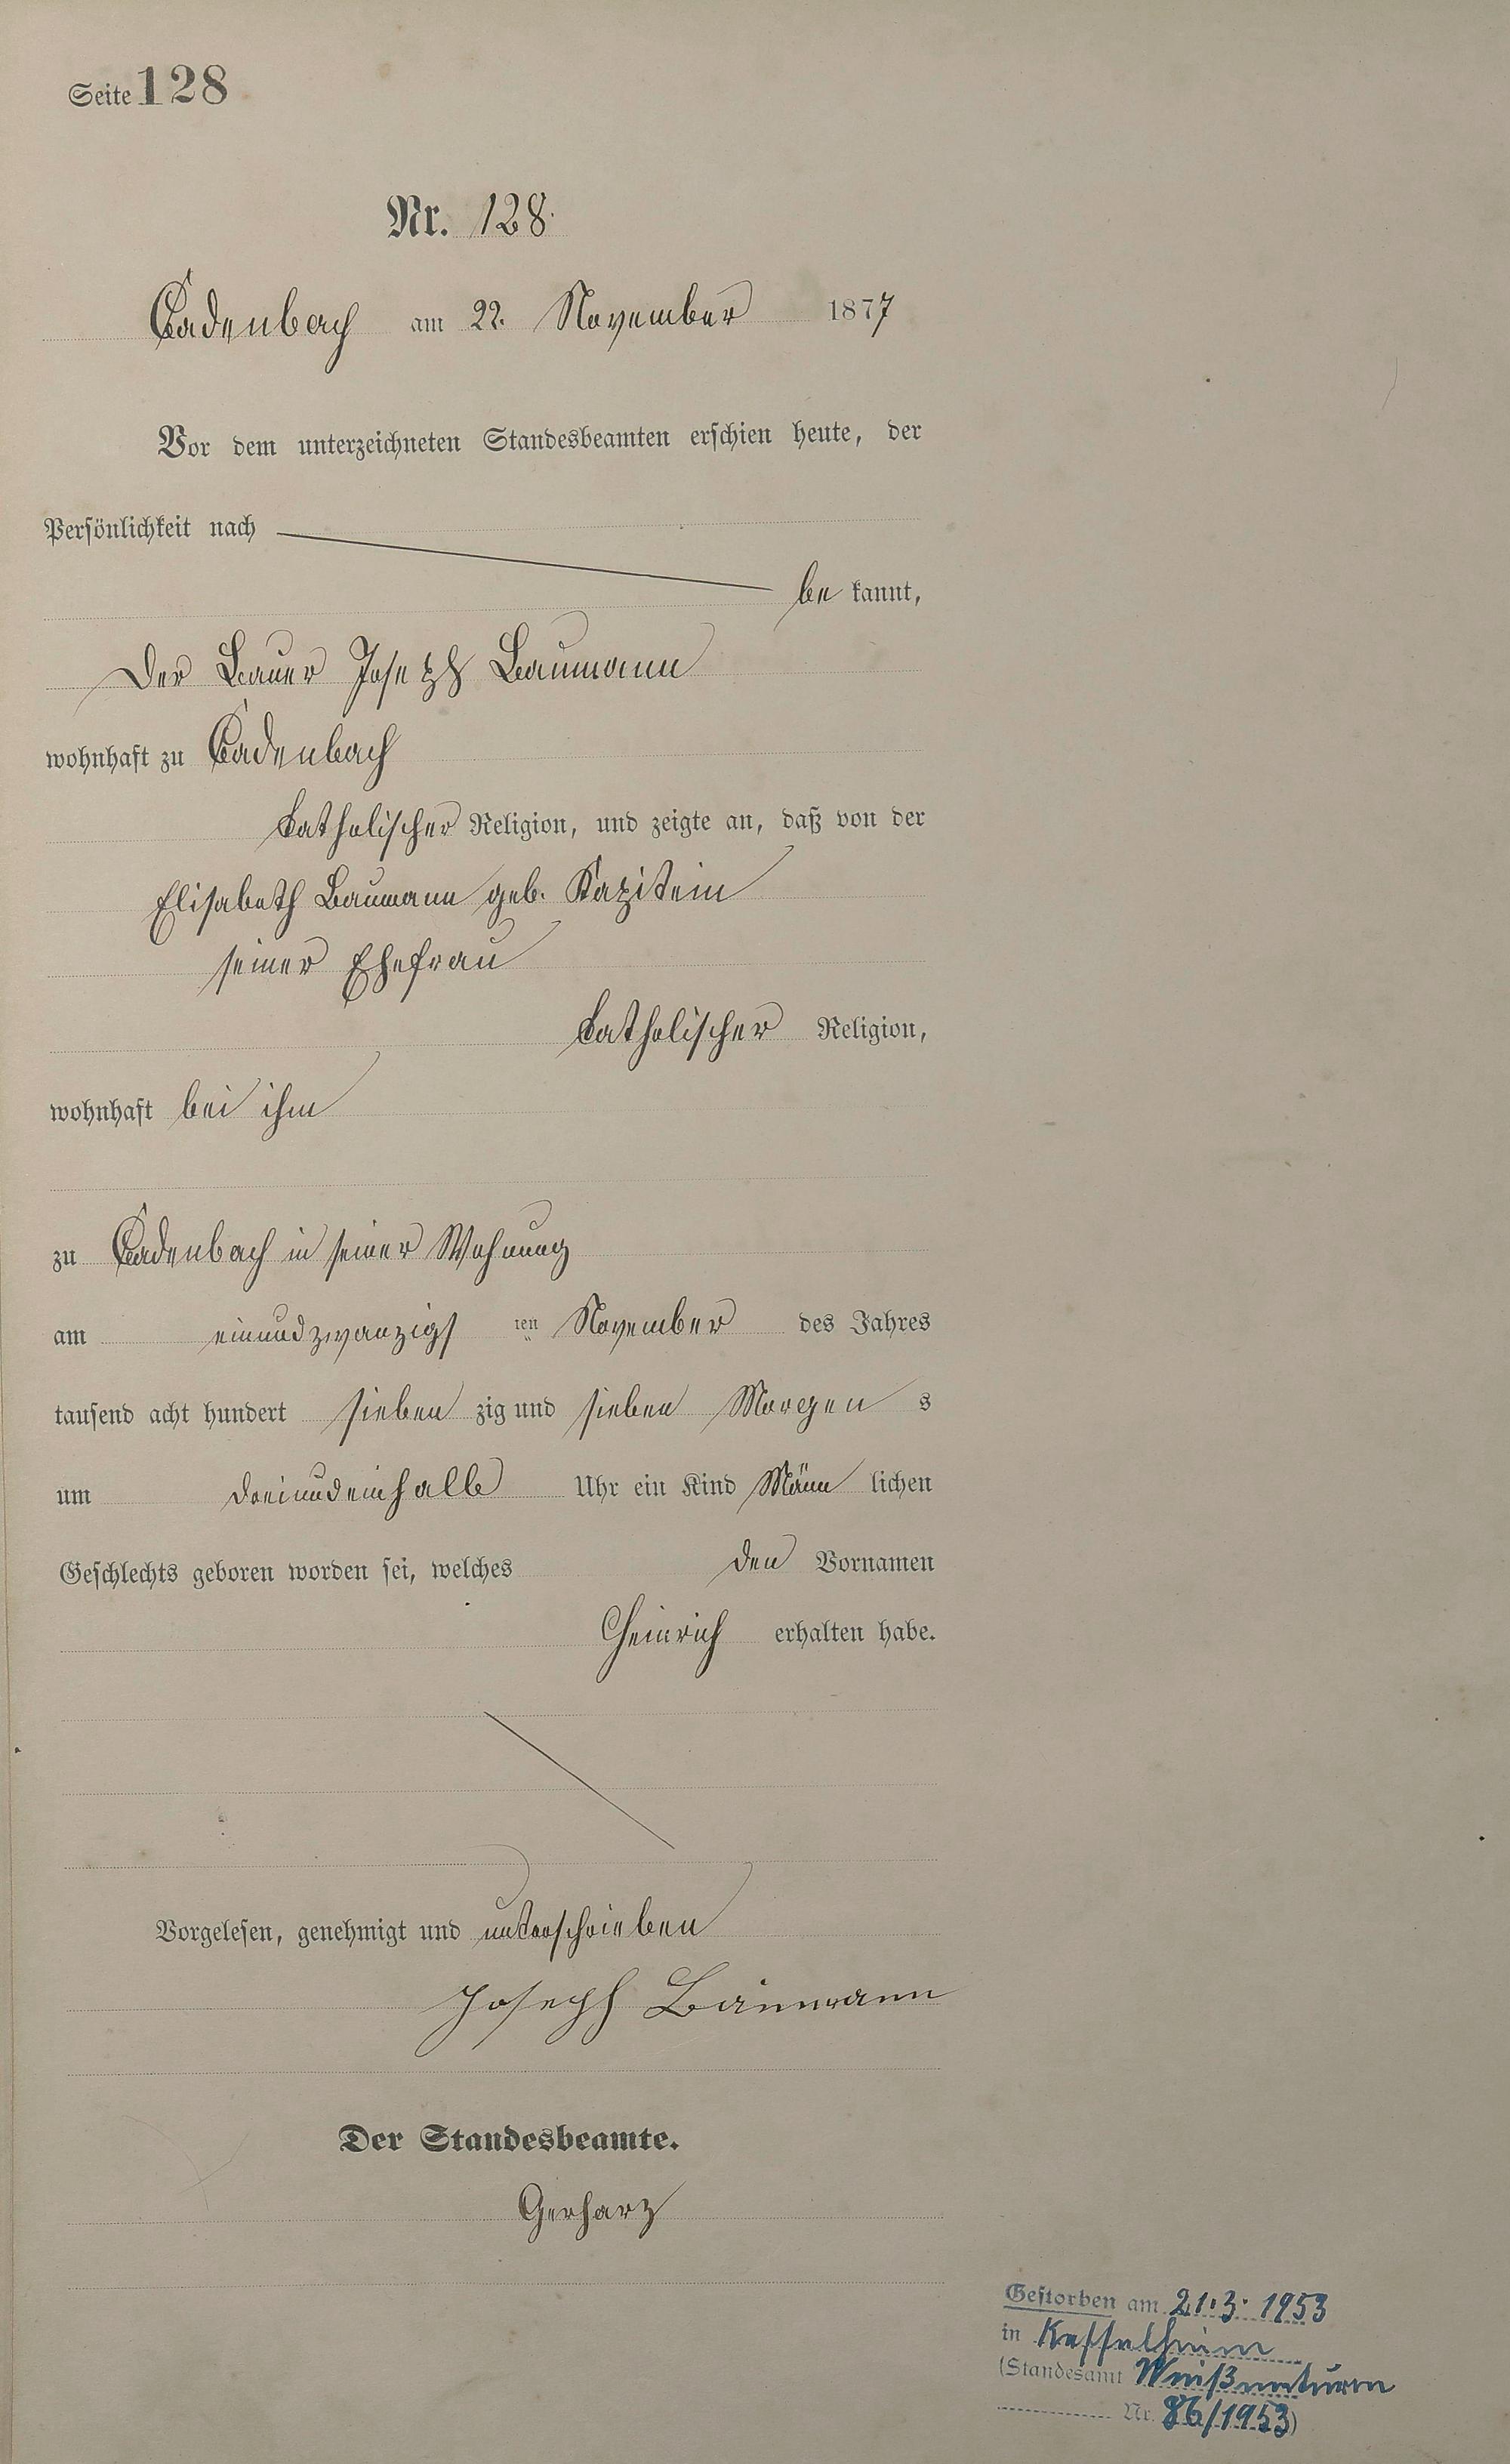 Seite 128
Nr. 128.
Cadenbach am 22. November 1877
Vor dem unterzeichneten Standesbeamten erschien heute, der
Persönlichkeit nach
be kannt,
Der Bauer Joseph Baumann
wohnhaft zu Cadenbach
katholischer Religion, und zeigte an, daß von der
Elisabeth Baumann geb. Kapitein
seiner Ehefrau
katholischer Religion,
wohnhaft bei ihm
zu Cadenbach in seiner Wohnung
am einundzwanzigs ten November des Jahres
tausend acht hundert sieben zig und sieben Morgen s
um dreiundeinhalb Uhr ein Kind Männ lichen
Geschlechts geboren worden sei, welches den Vornamen
Heinrich erhalten habe.
Vorgelesen, genehmigt und unterschrieben
Joseph Baumann
Der Standesbeamte.
Gerharz
Gestorben am 21.3. 1953
in Kesselheim
(Standesamt Weißenturm
Nr. 86/1953)